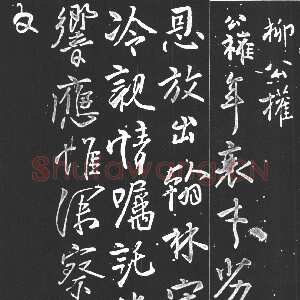 柳公權
公權年衰才劣
恩放出翰林守
冷親情囑託
響應惟深察
文
Shufawang.CN